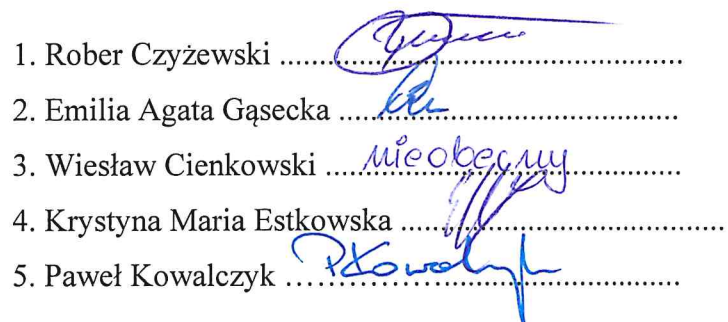 1. Rober Czyżewski ..................................................
2. Emilia Agata Gąsecka ..........................................
3. Wiesław Cienkowski ..... nieobecny ..............
4. Krystyna Maria Estkowska ........................................
5. Paweł Kowalczyk ... PKowalczyk ................